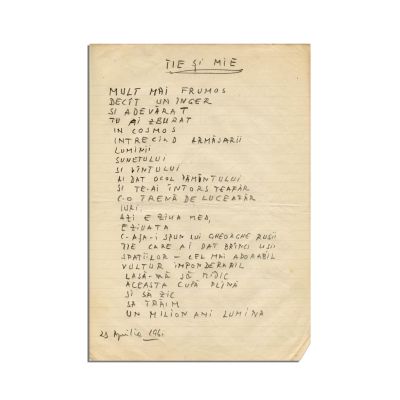 ȚIE ȘI MIE
MULT MAI FRUMOS
DECÎT UN ÎNGER
ȘI ADEVĂRAT
TU AI ZBURAT
IN COSMOS
INTRECÎND
LUMINII
SUNETULUI
ȘI VÎNTULUI
AI DAT OCOL PĂMÂNTULUI
ȘI TE-AI ÎNTORS TEAFĂR
C-O TRENĂ DE LUCEAFĂR
IURI,
AZI E ZIUA MEA,
E ZIUA TA
C-AȘA-I SPUN LUI GHEORGHE RUSII
ȚIE CARE AI DAT BRÎNCI UȘII
SPAȚIILOR - CEL MAI ADORABIL
VULTUR IMPONDERABIL
LASĂ-MĂ SĂ RIDIC
ACEASTA CUPĂ PLINĂ
ȘI SĂ ZIC
SĂ TRĂIM
UN MILION ANI LUMINA
23 Aprilie 196